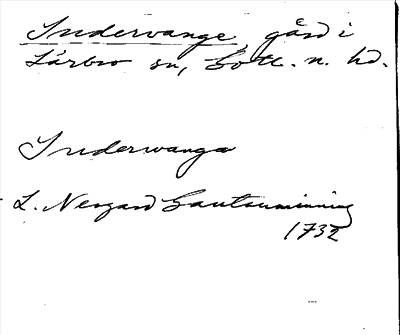 Indervange, gård i
Lärbro sn, Gotl. n. hd.
Inderwanga
L. Neogard Gautauminning
1732